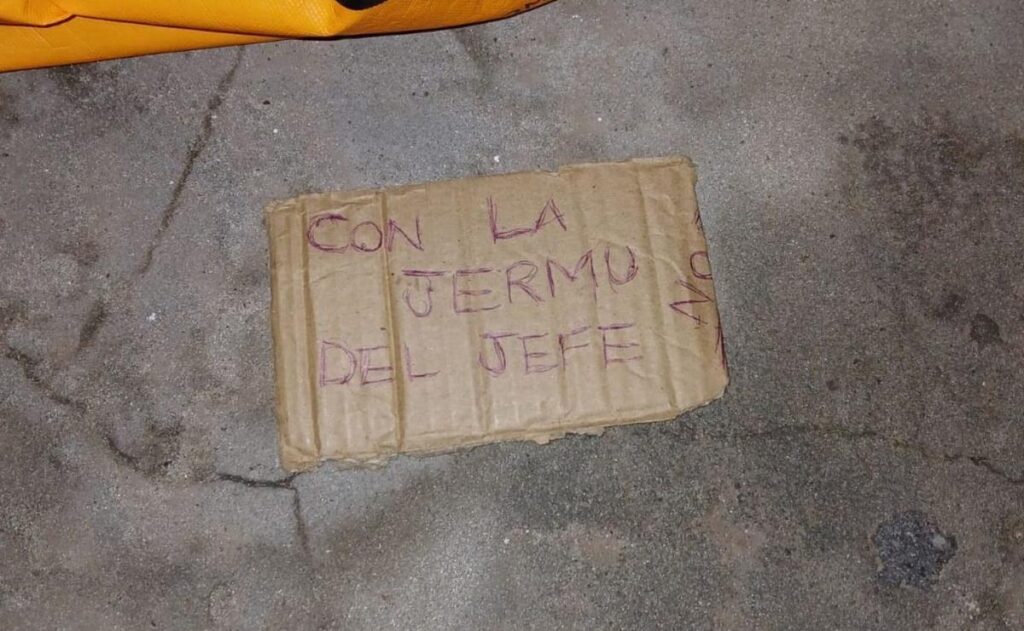 CON LA
JERMU
DEL JEFE
NO